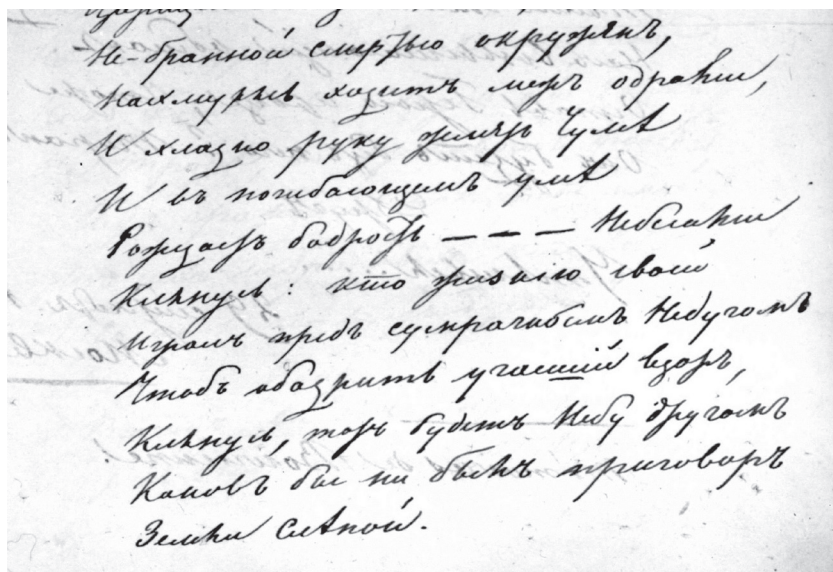 Не-бранной смертью окруженъ,
Нахмурясь ходитъ межъ одрами,
И хладно руку жметъ Чумѣ
И въ погибающемъ умѣ
Рождаетъ бодрость — — — Небесами
Клянусь: кто жизнию своей
Игралъ предъ сумрачнымъ Недугомъ
Чтобъ ободрить угасшій взоръ,
Клянусь, тотъ будетъ Небу другомъ
Каковъ бы ни былъ приговоръ
Земли слѣпой.